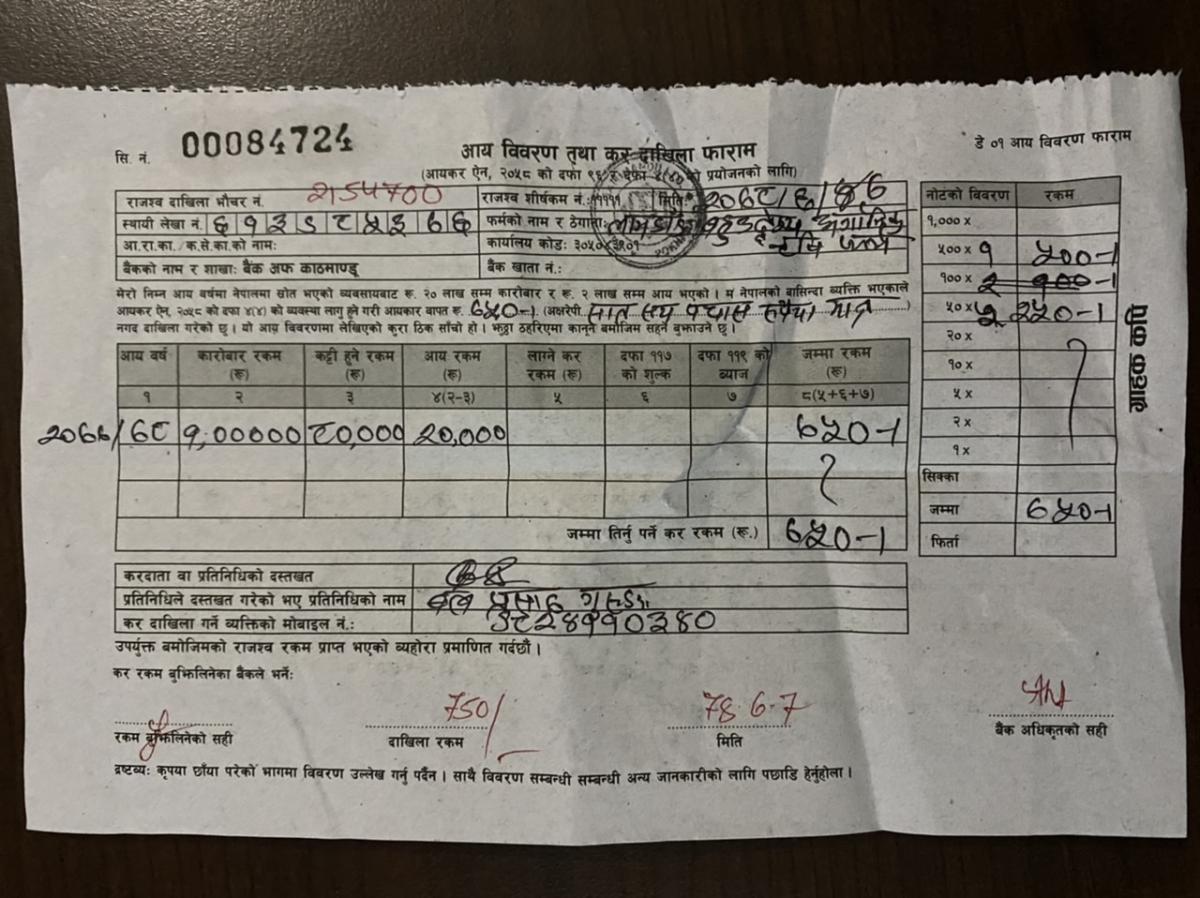 सि. नं. 00084724
डे ०१ आय विवरण फाराम
आय विवरण तथा कर दाखिला फाराम
(आयकर ऐन, २०५८ को दफा ९६ र दफा ४(४) को प्रयोजनको लागि)
राजश्व दाखिला भौचर नं. राजश्व शीर्षकम नं.: ११११ मिति:
स्थायी लेखा नं. फर्मको नाम र ठेगाना:
आ.रा.का. क.से.का.को नाम: कार्यालय कोड:
बैंकको नाम र शाखाः बैंक अफ काठमाण्डू बैंक खाता नं.:
मेरो निम्न आय वर्षमा नेपालमा स्रोत भएको व्यवसायबाट रू. २० लाख सम्म कारोबार र रू. २ लाख सम्म आय भएको । म नेपालको बासिन्दा व्यक्ति भएकाले
आयकर ऐन, २०५८ को दफा ४(४) को व्यवस्था लागु हुने गरी आयकार वापत रू. ७५०-। (अक्षरेपी सात सय पचास रुपैया मात्र)
नगद दाखिला गरेको छु । यो आय विवरणमा लेखिएको कुरा ठिक साँचो हो । झुठ्ठा ठहरिएमा कानून बमोजिम सहने बुझाउने छु ।
आय वर्ष कारोबार रकम (रू) कट्टी हुने रकम (रू) आय रकम (रू) लाग्ने कर रकम (रू) दफा ११७ को शुल्क दफा ११९ को ब्याज जम्मा रकम (रू)
१ २ ३ ४(२-३) ५ ६ ७ ८(५+६+७)
१,००००० ८०,००० २०,००० ७५०-।
जम्मा तिर्नु पर्ने कर रकम (रू.) ७५०-।
नोटको विवरण रकम
१,००० x
५०० x १ ५००-।
१०० x
५० x २५०-।
२० x
१० x
५ x
२ x
१ x
सिक्का
जम्मा ७५०-।
फिर्ता
ग्राहक कपि
करदाता वा प्रतिनिधिको दस्तखत
प्रतिनिधिले दस्तखत गरेको भए प्रतिनिधिको नाम प्रसाद
कर दाखिला गर्ने व्यक्तिको मोबाइल नं.:
उपर्युक्त बमोजिमको राजश्व रकम प्राप्त भएको व्यहोरा प्रमाणित गर्दछौं ।
कर रकम बुझिलिनेका बैंकले भर्नेः
750/ 78.6.7
रकम बुझिलिनेको सही दाखिला रकम मिति बैंक अधिकृतको सही
द्रष्टव्यः कृपया छाँया परेको भागमा विवरण उल्लेख गर्नु पर्दैन । साथै विवरण सम्बन्धी सम्बन्धी अन्य जानकारीको लागि पछाडि हेर्नुहोला ।